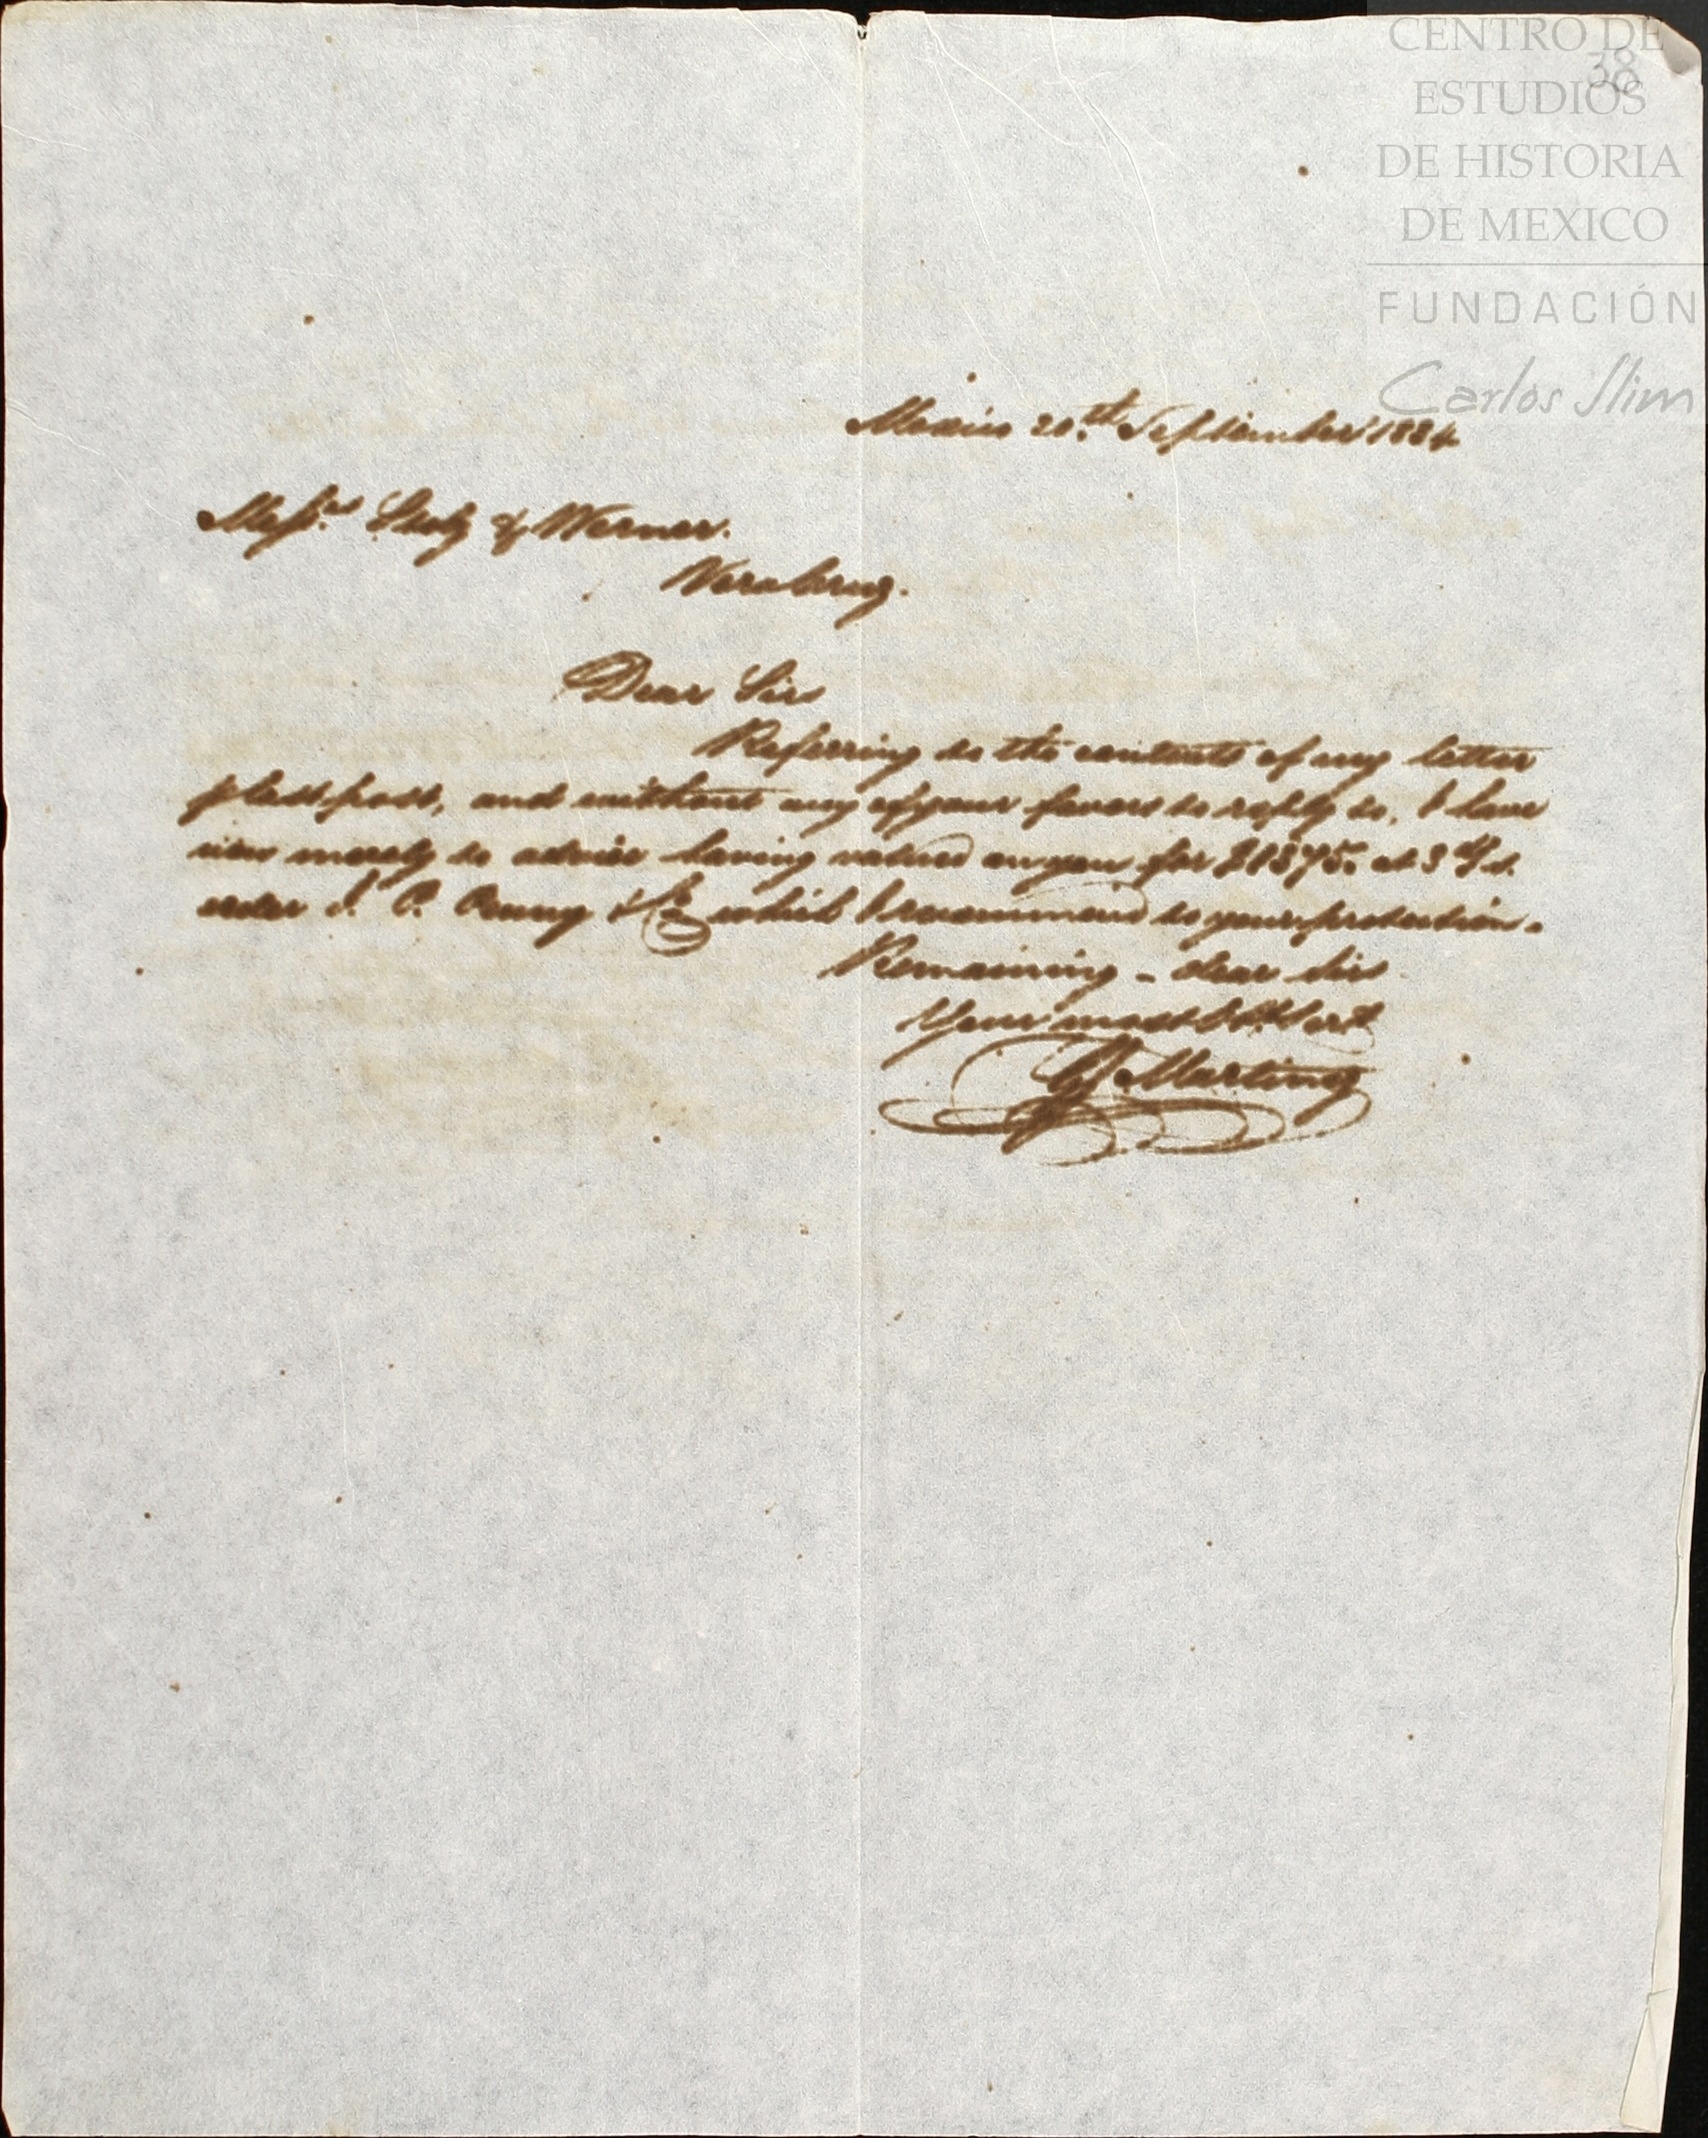 CENTRO DE
38
ESTUDIOS
DE HISTORIA
DE MEXICO
FUNDACIÓN
Carlos Slim
Mexico 20.th September 1834
Messrs & Werner.
Vera Cruz.
Dear Sirs
Referring to the contents of my letter
p last post, and without any of your favors to reply to, I have
now merely to advise having valued on you for $1375. at 3 d/s.
order P. & Co which I recommend to your protection.
Remaining - dear Sirs
Your most Obt Servt
G Martinez